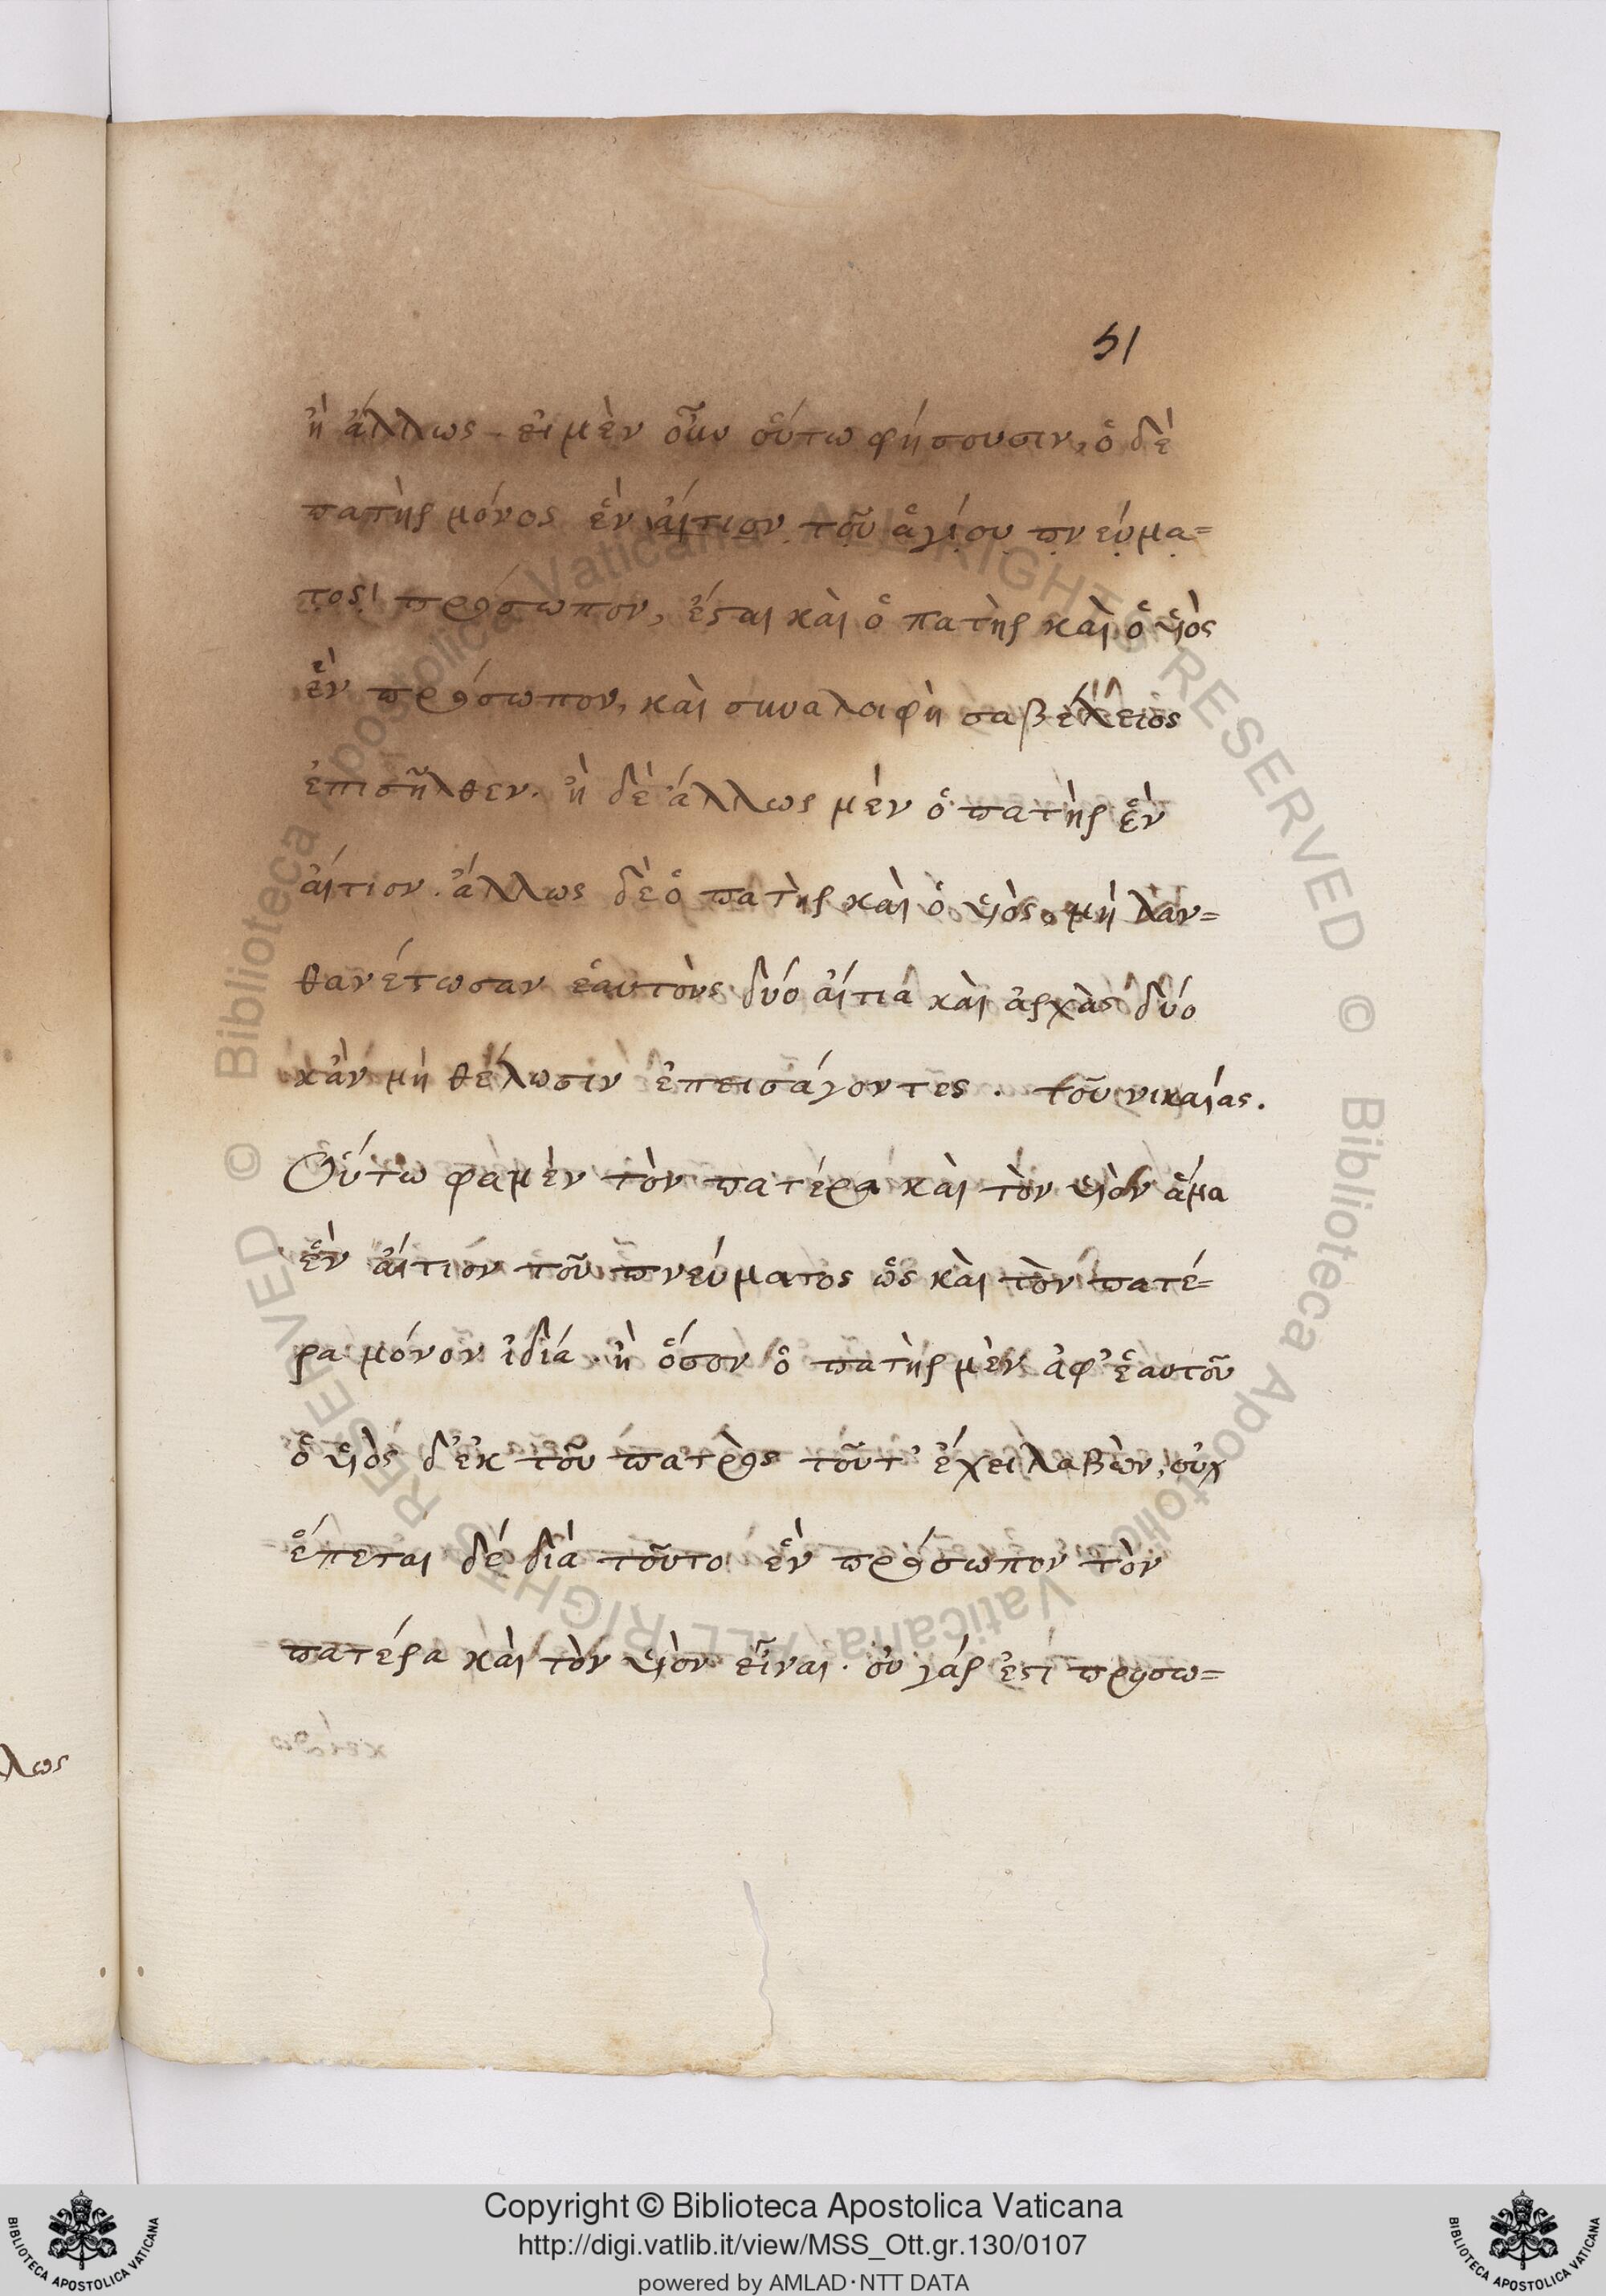 51
ἢ ἄλλως. εἰ μὲν οὖν οὕτω φήσουσιν, ὁ δὲ
πατὴρ μόνος ἓν αἴτιον τοῦ ἁγίου πνεύμα=
τος πρόσωπον, ἔσται καὶ ὁ πατὴρ καὶ ὁ υἱὸς
ἓν πρόσωπον, καὶ συναλοιφὴ σαβέλειος
ἐπισῆλθεν. ἢ δὲ ἄλλως μέν ὁ πατὴρ ἓν
αἴτιον. ἄλλως δὲ ὁ πατὴρ καὶ ὁ υἱὸς, μὴ λαν=
θανέτωσαν ἑαυτοὺς δύο αἴτια καὶ ἀρχὰς δύο
κἂν μὴ θέλωσιν ἐπεισάγοντες. τοῦ νικαίας.
Οὕτω φαμὲν τὸν πατέρα καὶ τὸν υἱὸν ἅμα
ἓν αἴτιον τοῦ πνεύματος ὡς καὶ τὸν πατέ=
ρα μόνον ἰδία. ἢ ὅσον ὁ πατὴρ μὲν ἀφ' ἑαυτοῦ
ὁ υἱὸς δ' ἐκ τοῦ πατρὸς τοῦτ' ἔχει λαβὼν, οὐχ
ἕπεται δὲ διὰ τοῦτο ἓν πρόσωπον τὸν
πατέρα καὶ τὸν υἱὸν εἶναι. οὐ γάρ ἐστι προσω=
λως
Copyright © Biblioteca Apostolica Vaticana
http://digi.vatlib.it/view/MSS_Ott.gr.130/0107
powered by AMLAD·NTT DATA
BIBLIOTECA APOSTOLICA VATICANA
BIBLIOTECA APOSTOLICA VATICANA
© Biblioteca Apostolica Vaticana ALL RIGHTS RESERVED
© Biblioteca Apostolica Vaticana ALL RIGHTS RESERVED